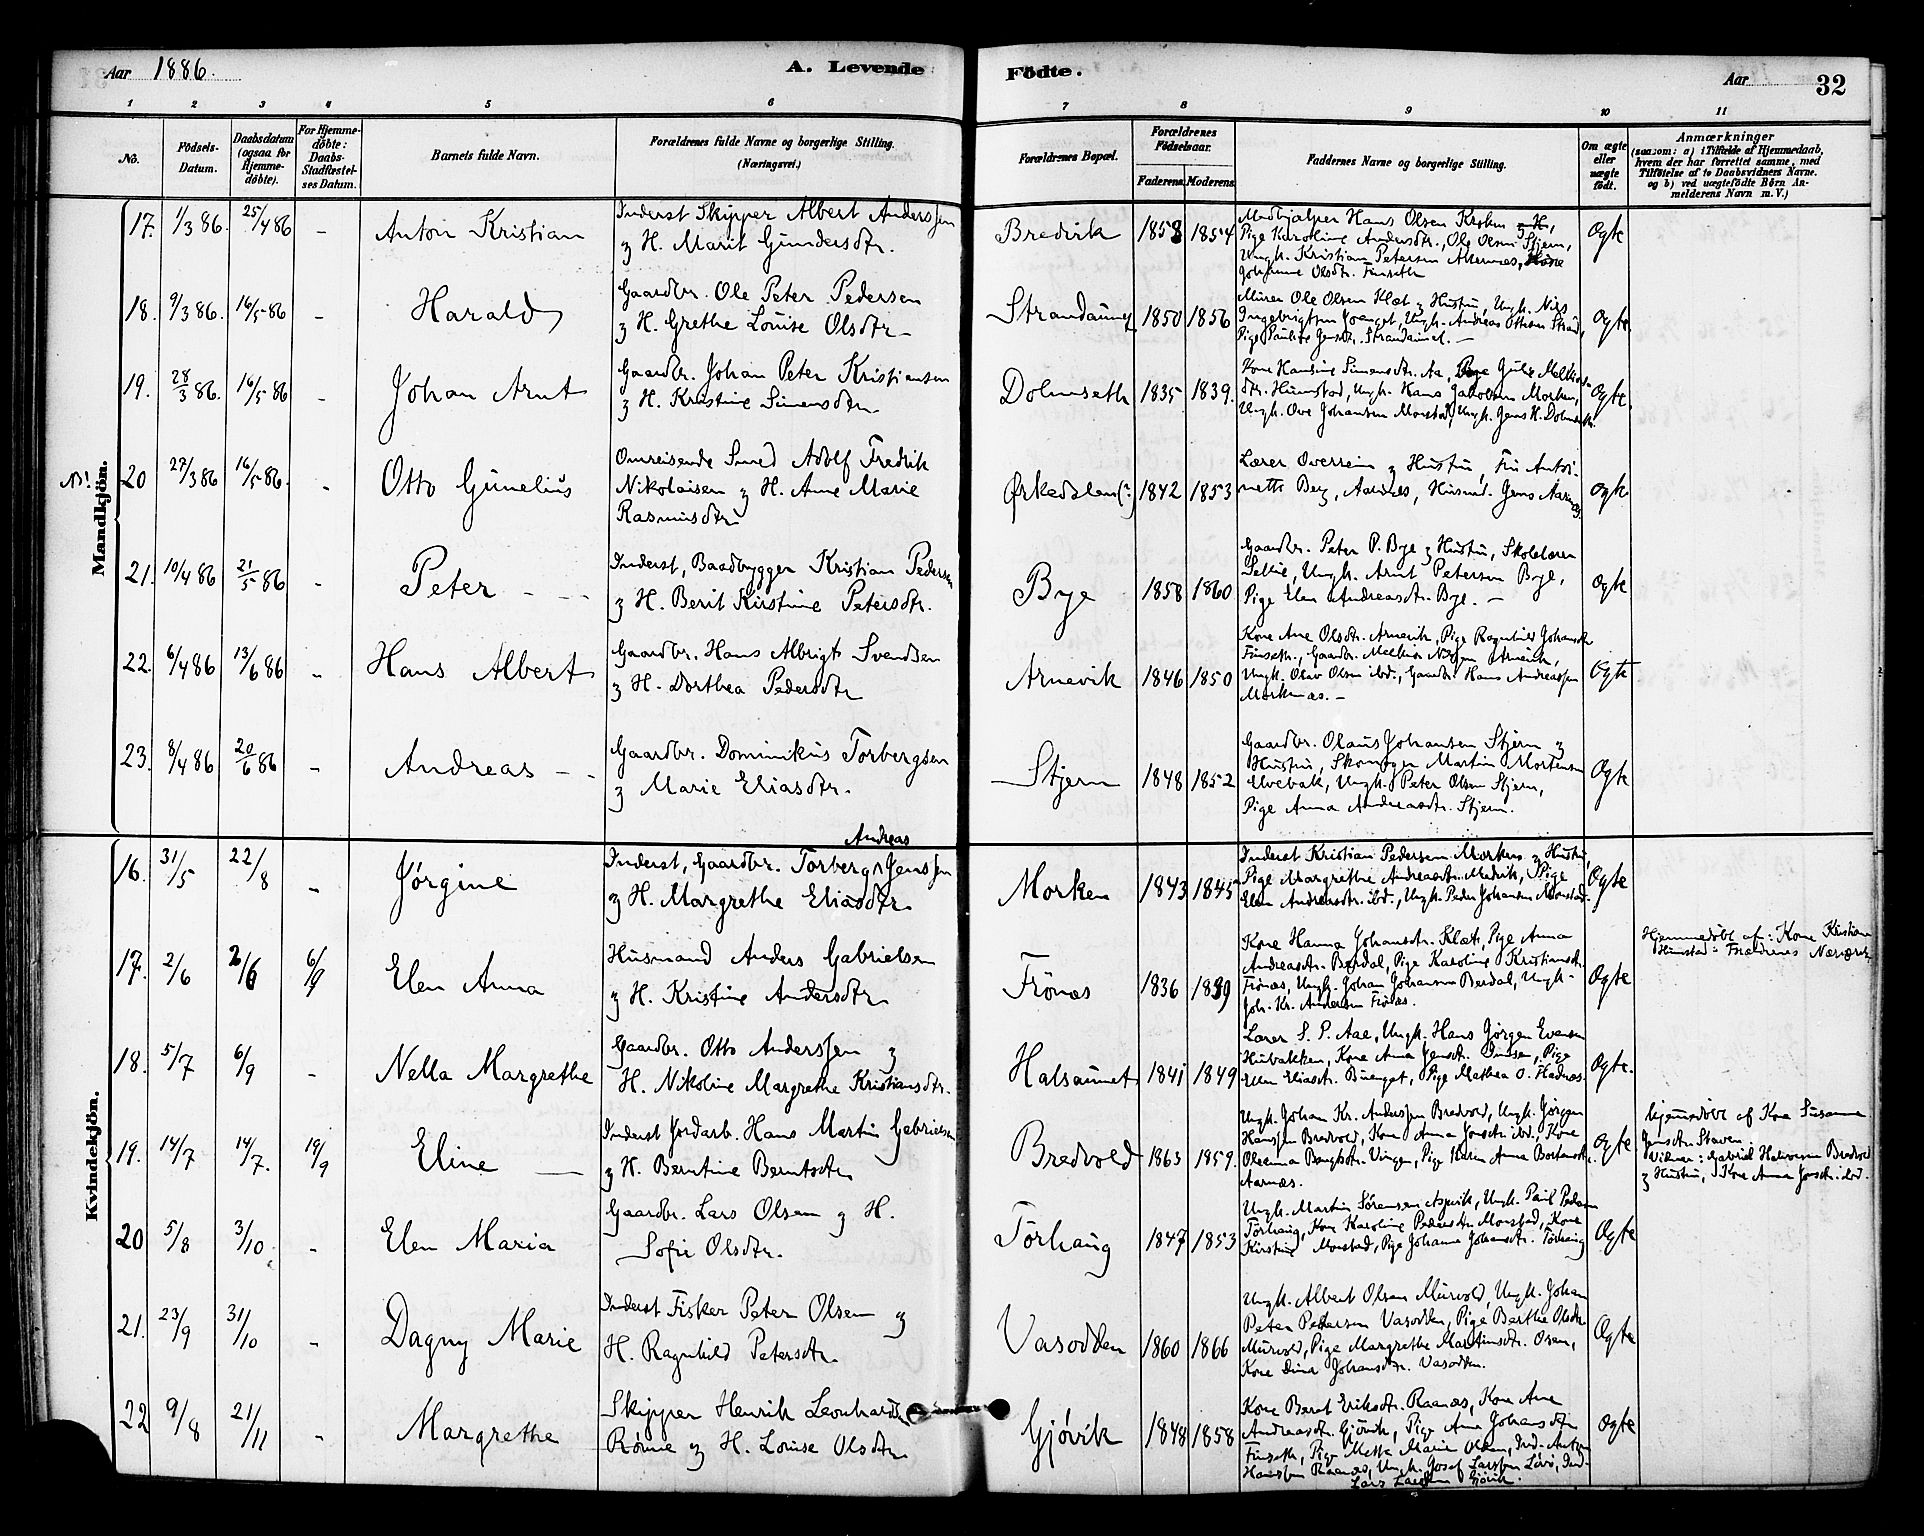 Aar 1886. A. Levende Födte. Aar 32
1 2 3 4 5 6 7 8 9 10 11
No. Födsels-Datum. Daabsdatum (ogsaa for Hjemme-döbte). For Hjemme-döbte: Daabs-Stadfæstel-ses Datum. Barnets fulde Navn. Forældrenes fulde Navne og borgerlige Stilling. (Næringsvei.) Forældrenes Bopæl. Forældrenes Födselsaar. Faderens. Moderens. Faddernes Navne og borgerlige Stilling. Om ægte eller uægte födt. Anmærkninger
(saasom: a) i Tilfælde af Hjemmedaab, hvem der har forrettet samme, med Tilföielse af to Daabsvidners Navne. og b) ved uægtefödte Börn An-melderens Navn m. V.)
Mandkjön.
17. 1/3 86. 25/4 86 - Anton Kristian
Inderst Skipper Albert Anderssen
og H. Marit Gundersdtr.
Bredvik 1853 1854
Medhjælper Hans Olsen
Pige Karoline Andersdtr., Ole Olsen Stjern,
Ungk. Kristian Petersen
Johanne Olsdtr. Finseth
Ægte
18. 9/3 86. 16/5 86 - Harald
Gaardbr. Ole Peter Pedersen
og H. Grethe Louise Olsdtr
Strandaunet 1850 1856
Murer Ole Olsen Klæt og Hustru, Ungk. Nils
Ingebrigtsen Ungk. Andreas Ottesen Strand,
Pige Pauline Jensdtr. Strandaunet.
Ægte
19. 28/3 86. 16/5 86 - Johan Arnt
Gaardbr. Johan Peter Kristiansen
og H. Kristine Simonsdtr
Dolmseth 1835 1839.
Kone Hansine Simonsdtr. Aa,
Humstad, Ungk. Hans Jakobsen Morken,
Ungk. Ove Johansen Monstad, Ungk. Jens H. Dolmseth.
Ægte.
NB! 20 27/3 86 16/5 86. - Otto Gunelius
Omreisende Smed Adolf Fredrik
Nikolaisen og H. Anne Marie
Rasmusdtr
Ørkedalen(?) 1842 1853
Lærer Overrein og Hustru, Fru Antoi-
nette Berg, Aarnes, Husmd. Jens Aarnes.
Ægte
21. 10/4 86 21/5 86 - Peter
Inderst, Baadbygger Kristian Pedersen
og H. Berit Kirstine Petersdtr.
Bye 1858 1860
Gaardbr. Peter P. Bye og Hustru, Skolelærer
Ungk. Arnt Petersen Bye,
Pige Elen Andreasdtr. Bye.
Ægte
22. 6/4 86 13/6 86 - Hans Albert
Gaardbr. Hans Albrigt Svendsen
og H. Dorthea Pedersdtr
Arnevik 1846 1850
Kone Ane Olsdtr. Arnevik, Pige Ragnhild Johansdtr
Finseth, Gaardbr. Melkior Arnevik,
Ungk. Olav Olsen ibd., Gaardbr. Hans Andreassen
Morknæs.
Ægte
23. 8/4 86 20/6 86 - Andreas
Gaardbr. Dominikus Torbergsen
og Marie Eliasdtr.
Stjern 1848 1852
Gaardbr. Olaus Johansen Stjern og
Hustru, Skomager Martin Mortensen
Elvebak, Ungk. Peter Olsen Stjern,
Pige Anna Andreasdtr. Stjern.
Ægte
Kvindekjön.
16. 31/5 22/8 - Jørgine
Andreas
Inderst, Gaardbr. Torberg Jenssen
og H. Margrethe Eliasdtr
Morken 1843 1845
Inderst Kristian Pedersen Morken og Hustru,
Pige Margrethe Andreasdtr. Pige
Elen Andreasdtr. ibd., Ungk. Peder Johansen Monstad.
Ægte
17. 2/6 2/6 6/9 Elen Anna
Husmand Anders Gabrielsen
og H. Kristine Andersdtr
Frönæs 1836 1839
Kone Hanna Johansdtr. Klæt, Pige Anna
Andreasdtr. Berdal, Pige Karoline Kristiansdtr.
Frönæs, Ungk. Johan Johansen Berdal, Ungk.
Joh. Kr. Andersen Frönæs.
Ægte
Hjemmedöbt af: Kone Kristian
Humstad i Forældrenes Nærværelse
18. 5/7 6/9 - Nella Margrethe
Gaardbr. Otto Anderssen og
H. Nikoline Margrethe Kristiansdtr.
Halsaunet 1841 1849
Lærer S. P. Aae, Ungk. Hans Jørgen Evensen
Hubakken, Kone Anna Jensdtr. Pige
Elen Eliasdtr. Buenget, Pige Mathea O. Hadnæs.
Ægte.
19. 14/7 14/7. 19/9 Eline
Inderst Jordarb. Hans Martin Gabrielsen
og H. Berntine Berntsdtr
Bredvold 1863 1859.
Ungk. Johan Kr. Anderssen Bredvold, Ungk. Jørgen
Hanssen Bredvold, Kone Anna Jonsdtr. ibd., Kone
Oleanna Vingen, Pige Karen Anna
Aarnæs.
Ægte
hjemmedöbt af Kone Susanna
Jensdtr. Staven
Vidner: Gabriel Halvorsen Bredvold
og Hustru, Kone Anna Jonsdtr. ibd.
20 5/8 3/10 - Elen Maria
Gaardbr. Lars Olsen og H.
Sofie Olsdtr.
Törhaug 1847 1853
Ungk. Martin Sörensen Aspvik, Ungk. Paul Pedersen
Törhaug, Kone Karoline Pedersdtr. Monstad, Kone
Kirstine Monstad, Pige Johanna Johansdtr. Törhaug
Ægte
21. 23/9 31/10 - Dagny Marie
Inderst Fisker Peter Olsen og
H. Ragnhild Petersdtr.
Vasodden 1860 1866
Ungk. Albert Olsen Murvold, Ungk. Johan
Peter Petersen Vasodden, Pige Berthe Olsdtr
Murvold, Pige Margrethe Martinsdtr. Osen,
Kone Dina Johansdtr. Vasodden.
Ægte
22 9/8 21/11 - Margrethe
Skipper Henrik Leonhard
Rönne og H. Louise Olsdtr
Gjövik 1848 1858
Kone Beret Eriksdtr. Raanæs, Kone Ane
Andreasdtr. Gjövik, Pige Ane Johansdtr
Finseth, Pige Mette Marie Olsen, Ind. Anton
Hanssen Raanæs, Ungk. Josef Larssen Ind.
Lars Larssen Gjövik.
Ægte